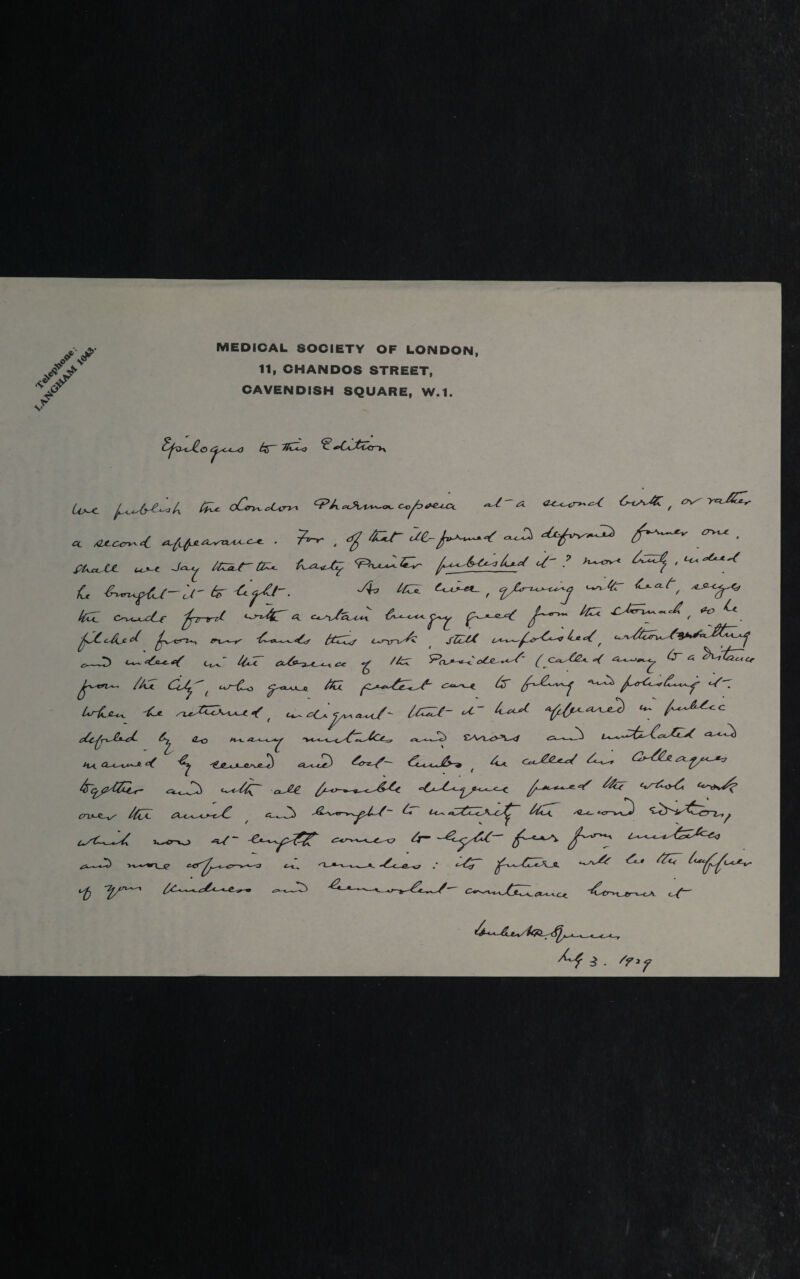 Telephone:
LANGHAM 1043.
MEDICAL SOCIETY OF LONDON,
11, CHANDOS STREET,
CAVENDISH SQUARE, W.1.
Epilogus to this Edition
We publish the London Pharmacopoeia at a second birth, or rather
a second appearance. For, of that ill-formed and deformed former one,
shall we say that the hasty Printer published it? more truly, indeed
he brought it to light. As the bear, growing with heat, seizes
the crude food with a certain hungry greed from the stomach, so he
filched from our hands this work, still unpolished, notwithstanding
and indeed in the absence of the President (called away to a distance
from the City, who gave the greatest care to filing and polishing it.
When he returned, indignant that it had appeared in public
defiled by so many mistakes and errors and mutilated and
maimed by severed and lost limbs, he called his Colleagues
together and with all possible diligence passed the whole work
over the anvil, and brought to maturity the second Edition,
which now at length comes to light free from mistakes
and more copious in remedies: its future will be the happier
if your kindness and benevolent countenance honours it
July 3. 1929